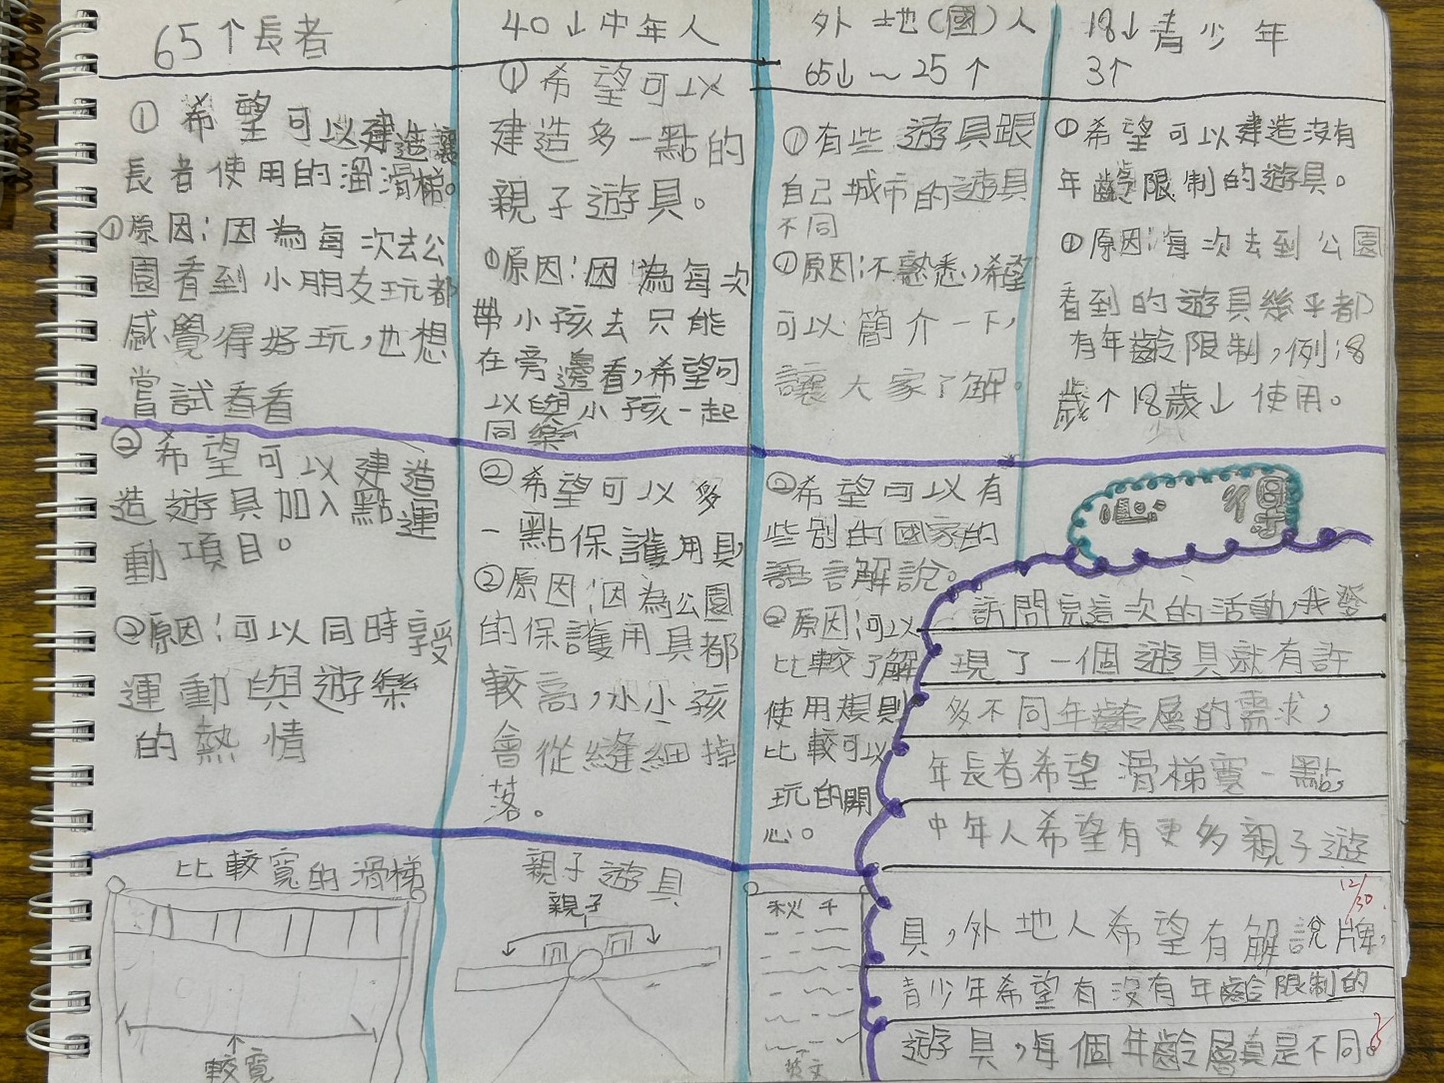 65↑長者
①希望可以建造讓
長者使用的溜滑梯。
①原因:因為每次去公
園看到小朋友玩都
感覺得好玩,也想
嘗試看看
②希望可以建造
造遊具加入點運
動項目。
②原因:可以同時享受
運動與遊樂
的熱情
比較寬的滑梯
較寬
40↓中年人
①希望可以
建造多一點的
親子遊具。
①原因:因為每次
帶小孩去只能
在旁邊看,希望可
以與小孩一起
同樂
②希望可以多
一點保護用具
②原因:因為公園
的保護用具都
較高,小小孩
會從縫細掉
落。
親子遊具
親子
外地(國)人
65↓~25↑
①有些遊具跟
自己城市的遊具
不同
①原因:不熟悉,希望
可以簡介一下,
讓大家了解。
②希望可以有
些別的國家的
語言解說。
②原因:可以
比較了解
使用規則
比較可以
玩的開
心。
秋千
英文
18↓青少年
3↑
①希望可以建造沒有
年齡限制的遊具。
①原因:每次去到公園
看到的遊具幾乎都
有年齡限制,例:8
歲↑18歲↓使用。
訪問完這次的活動,我發
現了一個遊具就有許
多不同年齡層的需求,
年長者希望滑梯寬一點,
中年人希望有更多親子遊
具,外地人希望有解說牌,
青少年希望有沒有年齡限制的
遊具,每個年齡層真是不同。
12/30